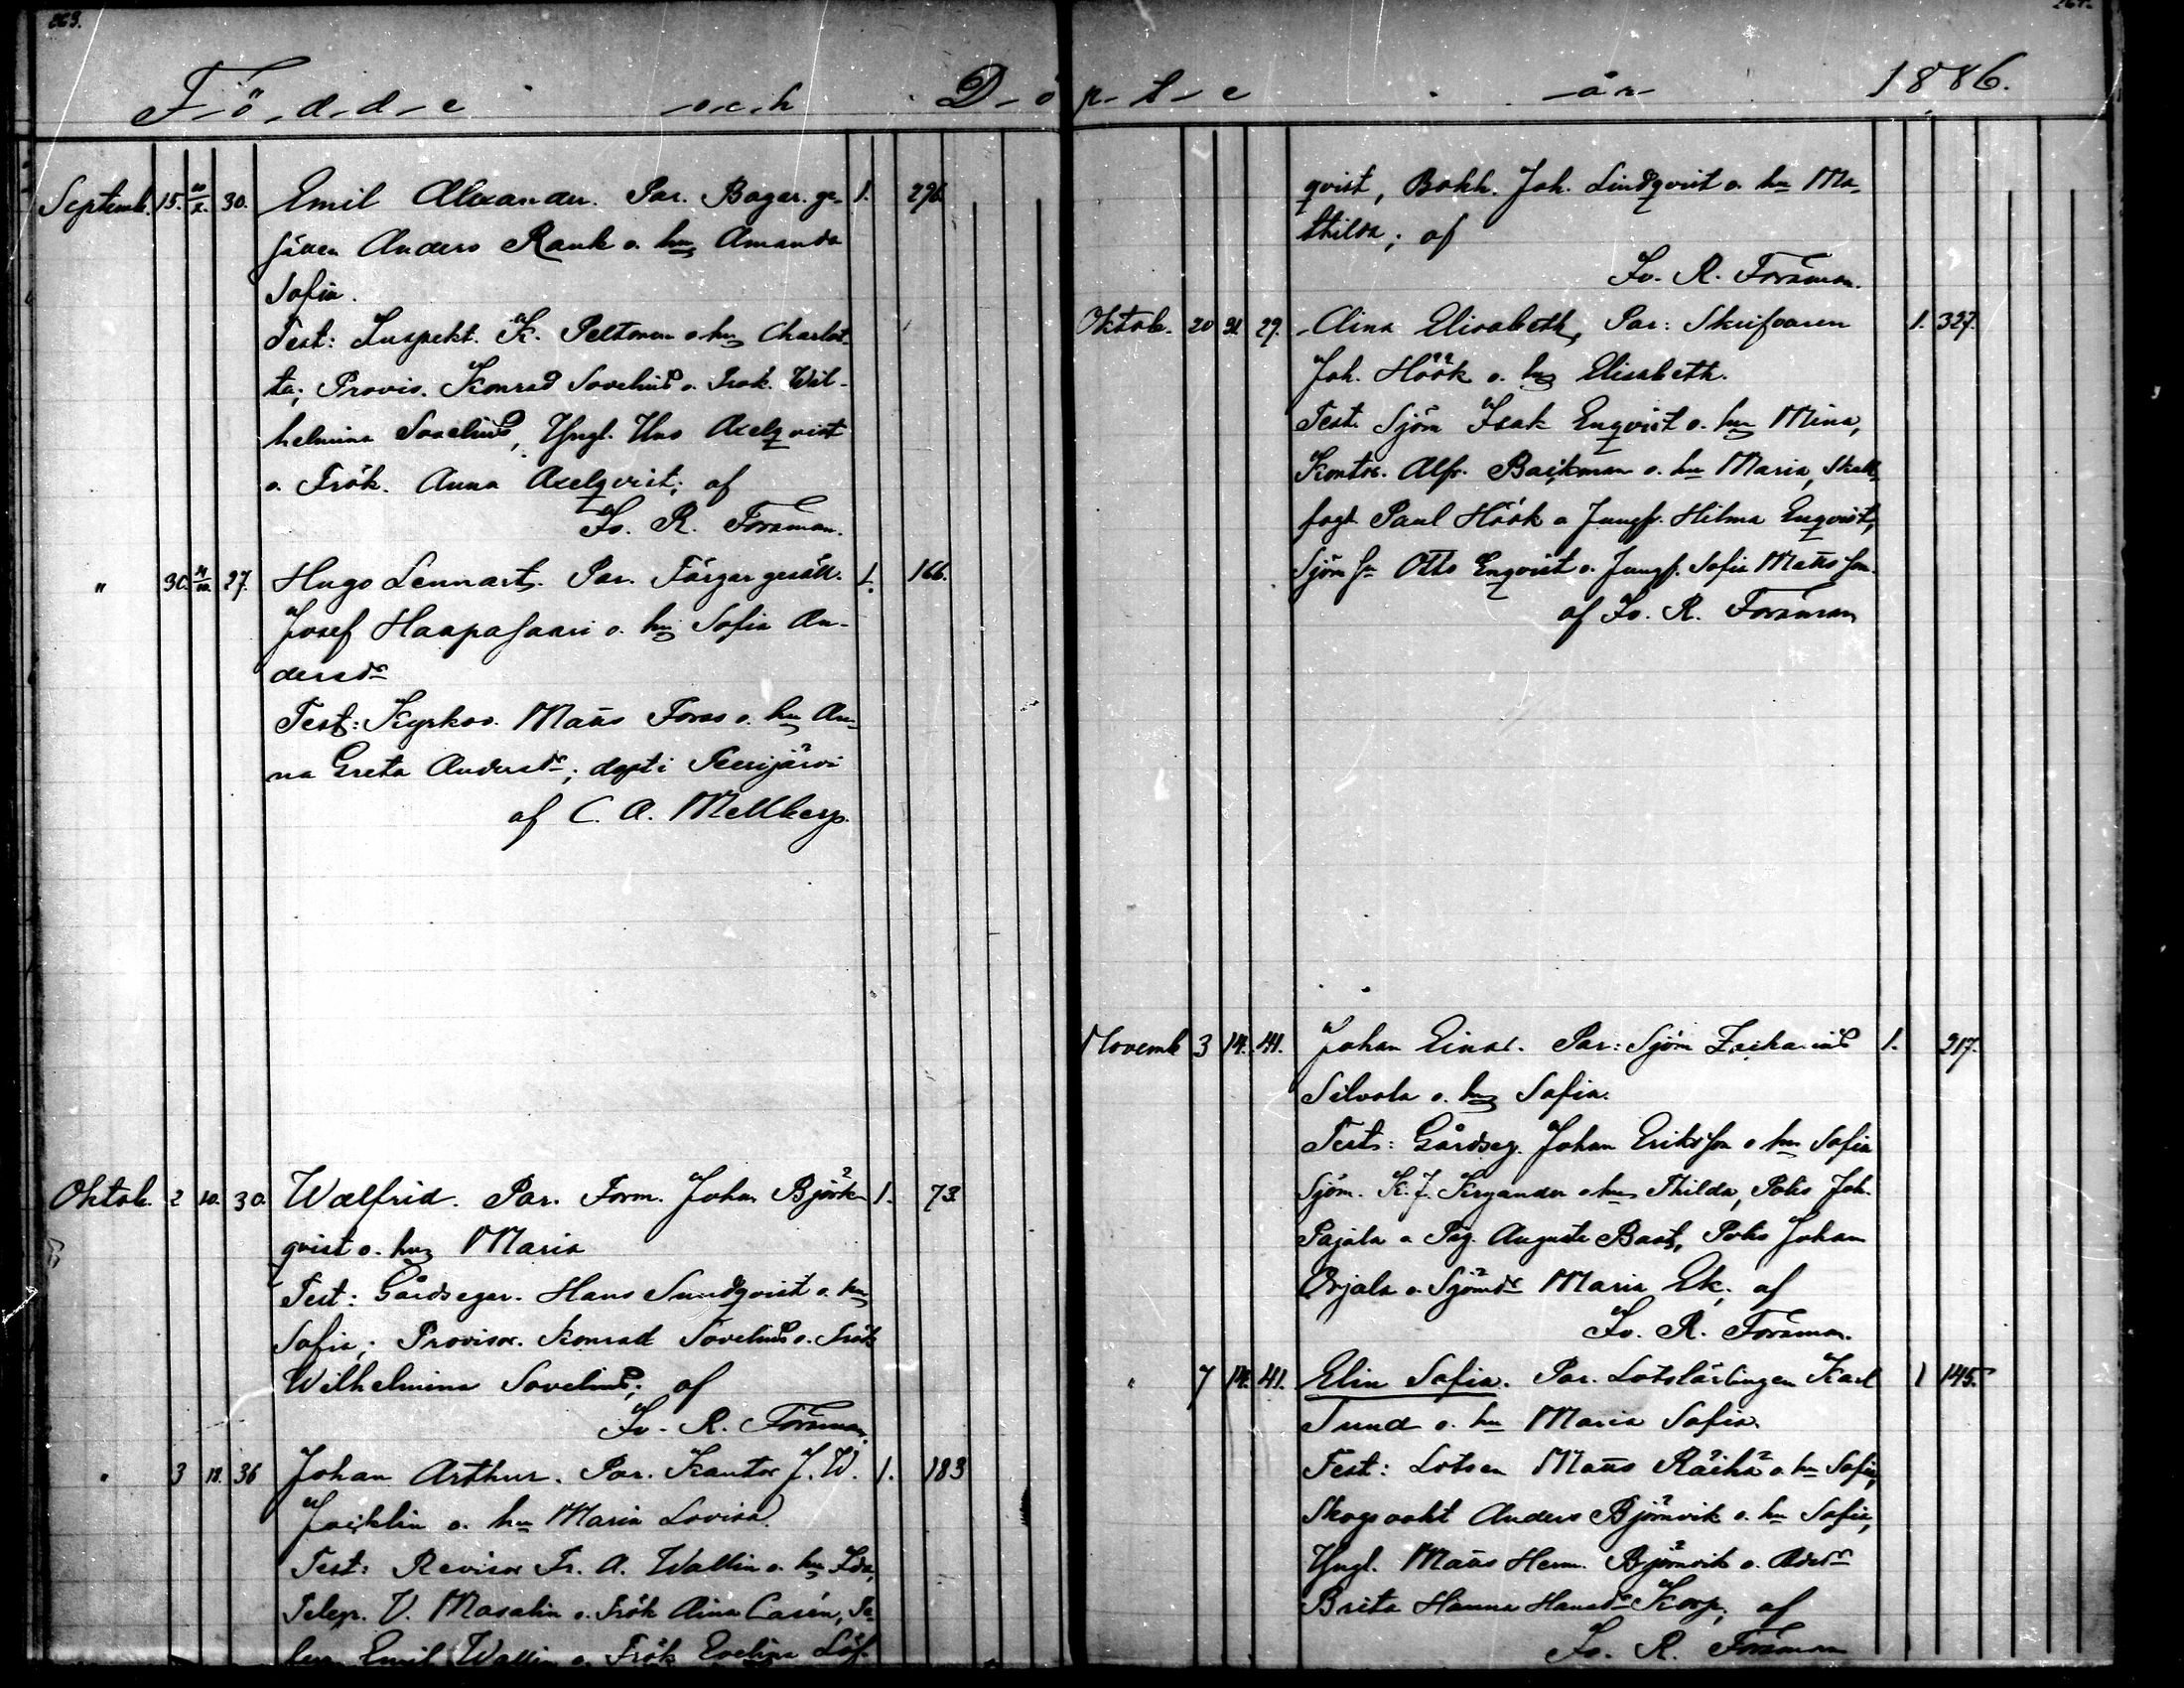 263.
Födde och Döpte år 1886.
Septemb. 15. 10/X. 30. Emil Alexander. Par. Bagar. ge- 1. 296.
sällen Anders Rank o. hu Amanda
Sofia.
Test: Inspekt. K. Peltonen o hu Charlot-
ta; Provis. Konrad Sovelius o. Frök. Wil-
helmina Sovelius, Yngl. Uno Axelqvist
o. Frök. Anna Axelqvist; af
Fr. R. Forsman.
" 30. 27. Hugo Lennart. Par. Färgar gesäll. 1. 166.
Josef Haapasaari o. hu Sofia An-
dersdr
Test: Kyrkov. Matts Forss o. hu An-
na Greta Andersdr; döpt i
af C. A. Mellberg.
Oktob. 2 10. 30. Walfrid. Par. Form. Johan Björk- 1. 73.
qvist o. hu Maria
Test: Gårdsegar. Hans Sundqvist o. hu
Sofia; Provisor. Konrad Sovelius o. Frök
Wilhelmina Sovelius; af
Fr. R. Forsman.
" 3 18. 36 Johan Arthur. Par. Kantor J. W. 1. 183
Jacklin o. hu Maria Lovisa.
Test: Revisor Fr. A. Wallin o. hu Ida,
Telegr. V. Masalin o. Frök Aina Casén, Te-
legr. Emil Wallin o. Frök Evelina Löf-
264.
qvist, Bokh. Joh. Lindqvist o. hu Ma-
thilda; af
Fr. R. Forsman.
Oktob. 20 31. 29. Alina Elisabeth, Par: Skrifvaren 1. 327.
Joh. Höök o. hu Elisabeth.
Test. Sjöm Isak Enqvist o. hu Mina,
Kontor. Alfr. Backman o. hu Maria,
fogd. Paul Höök o Jungfr. Hilma Enqvist,
Sjöm sn Otto Enqvist o. Jungf. Sofia Mattsson.
af Fr. R. Forsman
Novemb 3 14. 41. Johan Einar. Par: Sjöm Zacharias 1. 217.
Silvola o. hu Sofia.
Test: Gårdseg. Johan Eriksson o hu Sofia
Sjöm. K. J. Krgander o hu Thilda, Polis Joh.
Pajala o Pig. Augusta Bast, Polis Johan
Orjala o. Sjömdr Maria Ek; af
Fr. R. Forsman.
" 7 14. 41. Elin Sofia. Par. Lotslärlingen Karl 1 145.
Sund o. hu Maria Sofia.
Test: Lotsen Matts Räihä o. hu Sofia,
Skogsvakt Anders Björnvik o. hu Sofia,
Yngl. Matts Herm. Björnvik o.
Brita Hanna Hansdr Korp; af
Fr. R. Forsman